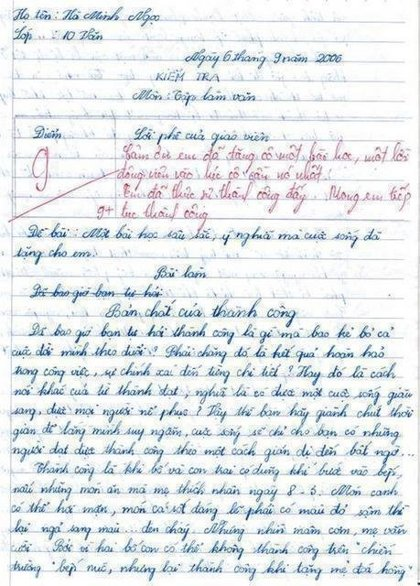 Họ tên : Hà Minh Ngọc
Lớp : 10 Văn
Ngày 6 tháng 9 năm 2006
KIỂM TRA
Môn : Tập làm văn
Điểm
Lời phê của giáo viên
9
Cảm ơn em đã tặng cô một bài học, một lời
động viên vào lúc cô cần nó nhất.
Em đã thực sự thành công đấy. Mong em tiếp
9+ tục thành công
Đề bài : Một bài học sâu sắc, ý nghĩa mà cuộc sống đã
tặng cho em.
Bài làm
Đã bao giờ bạn tự hỏi
Bản chất của thành công
Đã bao giờ bạn tự hỏi thành công là gì mà bao kẻ bỏ cả
cuộc đời mình theo đuổi ? Phải chăng đó là kết quả hoàn hảo
trong công việc, sự chính xác đến từng chi tiết ? Hay đó là cách
nói khác của từ thành đạt, nghĩa là có được một cuộc sống giàu
sang, được mọi người nể phục ? Vậy thì bạn hãy giành chút thời
gian để lắng mình suy ngẫm, cuộc sống sẽ chỉ cho bạn có những
người đạt được thành công theo một cách giản dị đến bất ngờ ...
Thành công là khi bố và con trai có dũng khí bước vào bếp
nấu những món ăn mà mẹ thích nhân ngày 8 - 3. Món canh
có thể hơi mặn, món cá sốt đáng lẽ phải có màu đỏ sậm thì
lại ngả sang màu ... đen cháy. Nhưng nhìn mâm cơm, mẹ vẫn
cười. Bởi vì hai bố con có thể không thành công trên "chiến
trường" bếp núc, nhưng lại thành công khi tặng mẹ đóa hồng